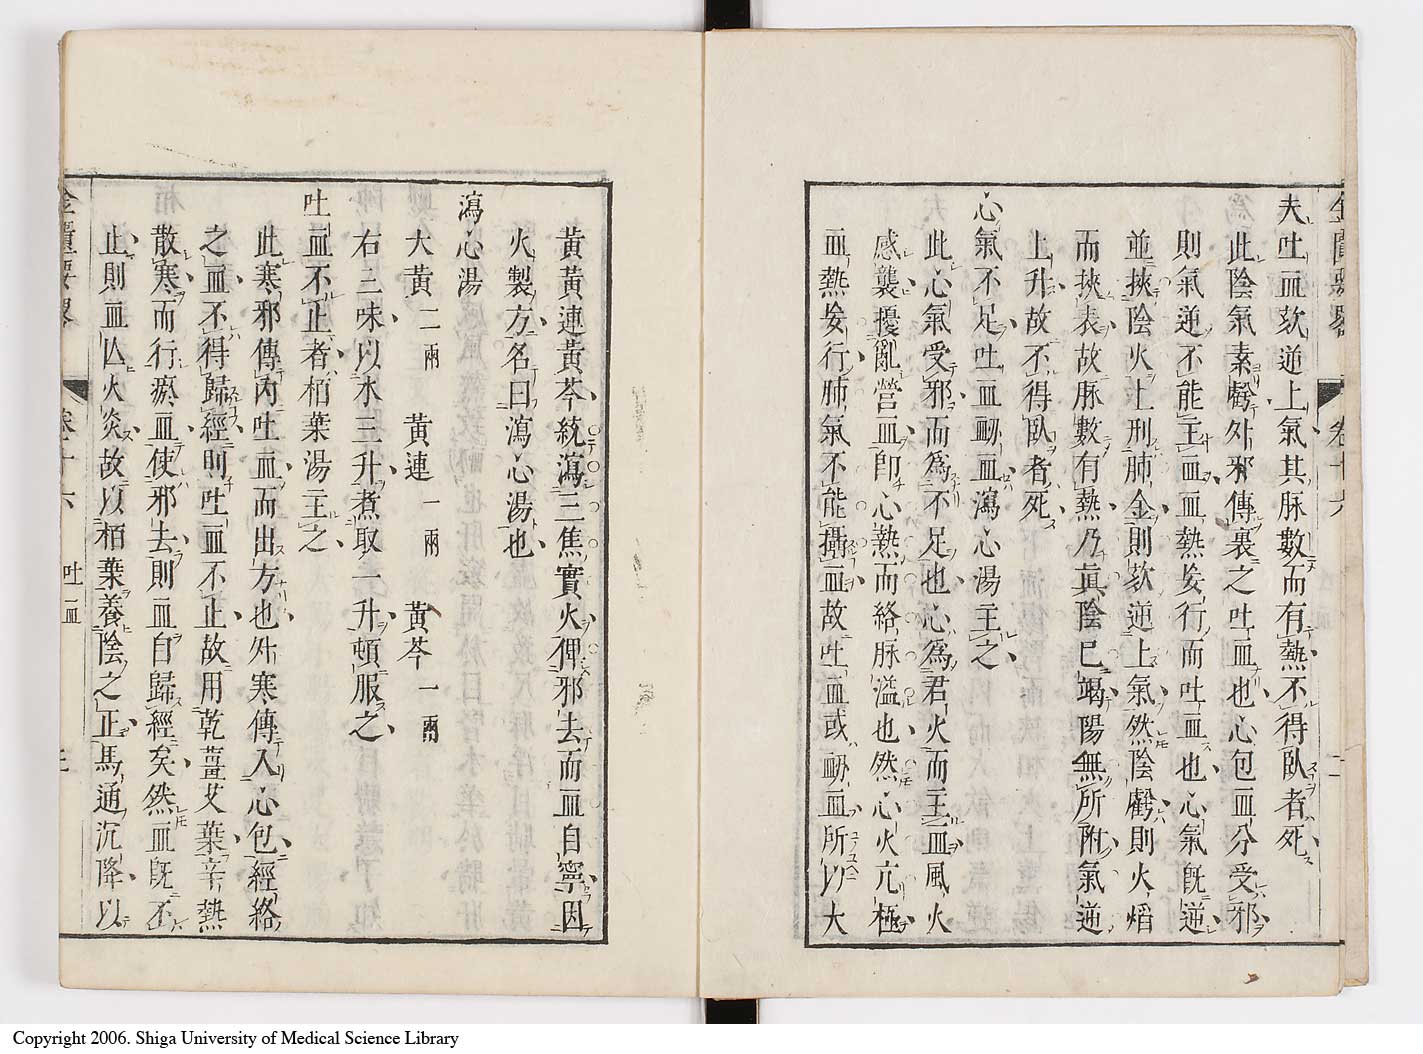 夫吐血欬逆上氣其脉數而有熱不得臥者死
此陰氣素虧外邪傳裏之吐血也心包血分受邪
則氣逆不能主血血熱妄行而吐血也心氣旣逆
並挾陰火上刑肺金則欬逆上氣然陰虧則火熖
而挾表故脉數有熱乃眞陰已竭陽無所附氣逆
上升故不得臥者死
心氣不足吐血衂血瀉心湯主之
此心氣受邪而為不足也心為君火而主血風火
感襲擾亂營血卽心熱而絡脉溢也然心火亢極
血熱妄行肺氣不能攝血故吐血或衂血所以大
黃黃連黃芩統瀉三焦實火俾邪去而血自寧因
火製方名曰瀉心湯也
瀉心湯
大黃二兩 黃連一兩 黃芩一兩
右三味以水三升煮取一升頓服之
吐血不止者栢葉湯主之
此寒邪傳內吐血而出方也外寒傳入心包經絡
之血不得歸經則吐血不止故用乾薑艾葉辛熱
散寒而行瘀血使邪去則血自歸經矣然血旣不
止則血仏火炎故以栢葉養陰之正馬通沉降以
卷十六 吐血
Copyright 2006. Shiga University of Medical Science Library